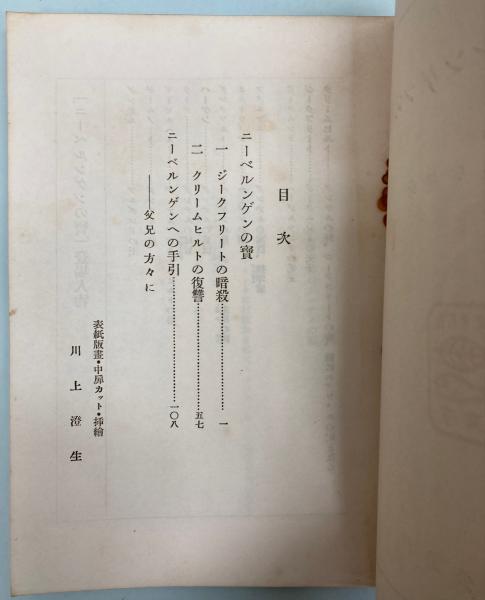 目次
ニーベルンゲンの寶
一 ジークフリートの暗殺……………………一
二 クリームヒルトの復讐……………………五七
ニーベルンゲンへの手引……………………一〇八
――父兄の方々に
表紙版畫・中扉カット・挿繪
川上澄生